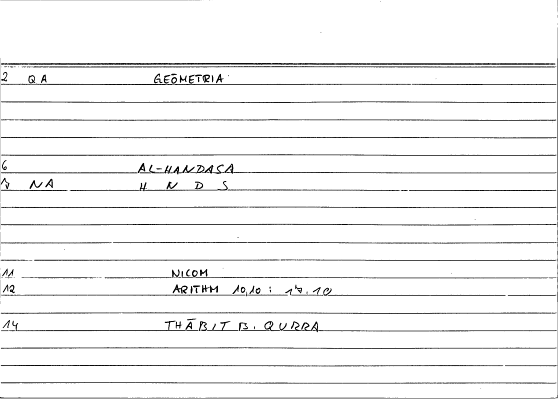 2 QA GEŌMETRIA
6 AL-HANDASA
7 NA H N D S
11 NICOM
12 ARITHM 10,10 : 17.10
14 THĀBIT B. QURRA